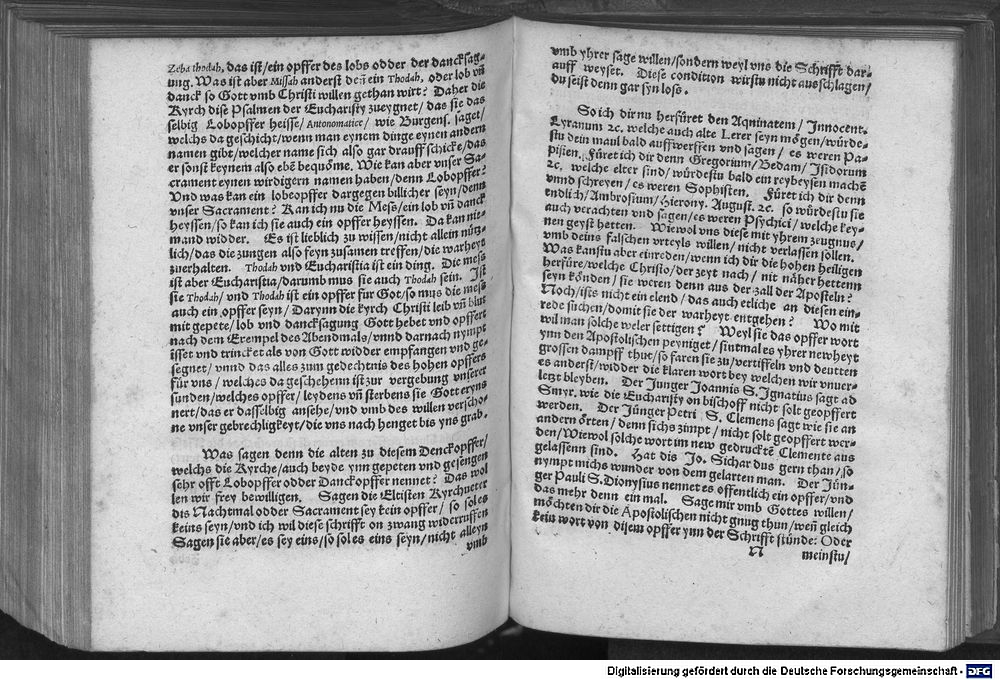 Zeba thodah, das ist/ein opffer des lobs odder der dancksag-
ung. Was ist aber Missah anderst deñ ein Thodah, oder lob vñ
danck so Gott vmb Christi willen gethan wirt? Daher die
Kyrch dise Psalmen der Eucharisty zueygnet/das sie das
selbig Lobopffer heisse/Antonomatice/ wie Burgens. saget/
welchs da geschicht/wenn man eynem dinge eynen andern
namen gibt/welcher name sich also gar drauff schicke/das
er sonst keynem also ebē bequöme. Wie kan aber vnser Sa-
crament eynen wirdigern namen haben/denn Lobopffer?
Vnd was kan ein lobeopffer dargegen billicher seyn/denn
vnser Sacrament? Kan ich nu die Mess/ein lob vñ danck
heyssen/so kan ich sie auch ein opffer heyssen. Da kan nie-
mand widder. Es ist lieblich zu wissen/nicht allein nütz-
lich/das die zungen also feyn zusamen treffen/die warheyt
zuerhalten. Thodah vnd Eucharistia ist ein ding. Die mess
ist aber Eucharistia/darumb mus sie auch Thodah sein. Ist
sie Thodah/ vnd Thodah ist ein opffer fur Got/so mus die mess
auch ein opffer seyn/ Darynn die kyrch Christi leib vñ blut
mit gepete/lob vnd dancksagung Gott hebet vnd opffert
nach dem Exempel des Abendmals/vnnd darnach nympt
isset vnd trincket als von Gott widder empfangen vnd ge-
segnet/ vnnd das alles zum gedechtnis des hohen opffers
für vns / welches da geschehenn ist zur vergebung vnserer
sunden/welches opffer/ leydens vñ sterbens sie Gott eryns
nert/das er dasselbig ansehe/vnd vmb des willen verscho-
ne vnser gebrechligkeyt/die vns nach henget bis yns grab.
Was sagen denn die alten zu diesem Denckopffer/
welchs die Kyrche/auch beyde ynn gepeten vnd gesengen
sehr offt Lobopffer odder Danckopffer nennet? Das wol
len wir frey bewilligen. Sagen die Eltisten Kyrchueter
dis Nachtmal odder Sacrament sey kein opffer/ so sol es
keins seyn/vnd ich wil diese schrifft on zwang widerruffen
Sagen sie aber/es sey eins/so sol es eins seyn/nicht alleyn
vmb
vmb yhrer sage willen/sondern weyl vns die Schrifft dar-
auff weyset. Diese condition wirstu nicht ausschlagen/
du seist denn gar syn loss.
So ich dir nu herfüret den Aqninatem/ Innocent.
Lyranum ꝛc. welche auch alte Lerer seyn mögen/würde-
stu dein maul bald auffwerffen vnd sagen/ es weren Pa-
pisten. Füret ich dir denn Gregorium/Bedam/ Isidorum
ꝛc. welche elter sind/würdestu bald ein reybeysen machē
vnnd schreyen/es weren Sophisten. Füret ich dir denn
endlich/Ambrosium/Hierony. August. ꝛc. so würdestu sie
auch verachten vnd sagen/es weren Psychici/ welche key-
nen geyst hetten. Wiewol vns diese mit yhrem zeugnus/
vmb deins falschen vrteyls willen/ nicht verlassen sollen.
Was kanstu aber einreden/wenn ich dir die hohen heiligen
herfüre/welche Christo/der zeyt nach/ nit näher hettenn
seyn könden/sie weren denn aus der zall der Aposteln?
Noch/ists nicht ein elend/das auch etliche an diesen ein-
rede suchen/domit sie der warheyt entgehen? Wo mit
wil man solche weler settigen? Weyl sie das opffer wort
ynn den Apostolischen peyniget/sintmal es yhrer newheyt
grossen dampff thut/so faren sie zu/vertiffeln vnd deutten
es anderst/widder die klaren wort bey welchen wir vnuer-
letzt bleyben. Der Junger Joannis S. Ignatius sagt ad
Smyr. wie die Eucharisty on bischoff nicht solt geopffert
werden. Der Jünger Petri S. Clemens sagt wie sie an
andern örten/ denn sichs zimpt/ nicht solt geopffert wer-
den/Wiewol solche wort im new gedrucktē Clemente aus
gelassenn sind. Hat dis Jo. Sichardus gern than/so
nympt michs wunder von dem gelarten man. Der Jün-
ger Pauli S. Dionysius nennet es offentlich ein opffer/vnd
das mehr denn ein mal. Sage mir vmb Gottes willen/
möchten dir die Apostolischen nicht gnug thun/weñ gleich
kein wort von disem opffer ynn der Schrifft stünde: Oder
N meinstu/
Digitalisierung gefördert durch die Deutsche Forschungsgemeinschaft - DFG